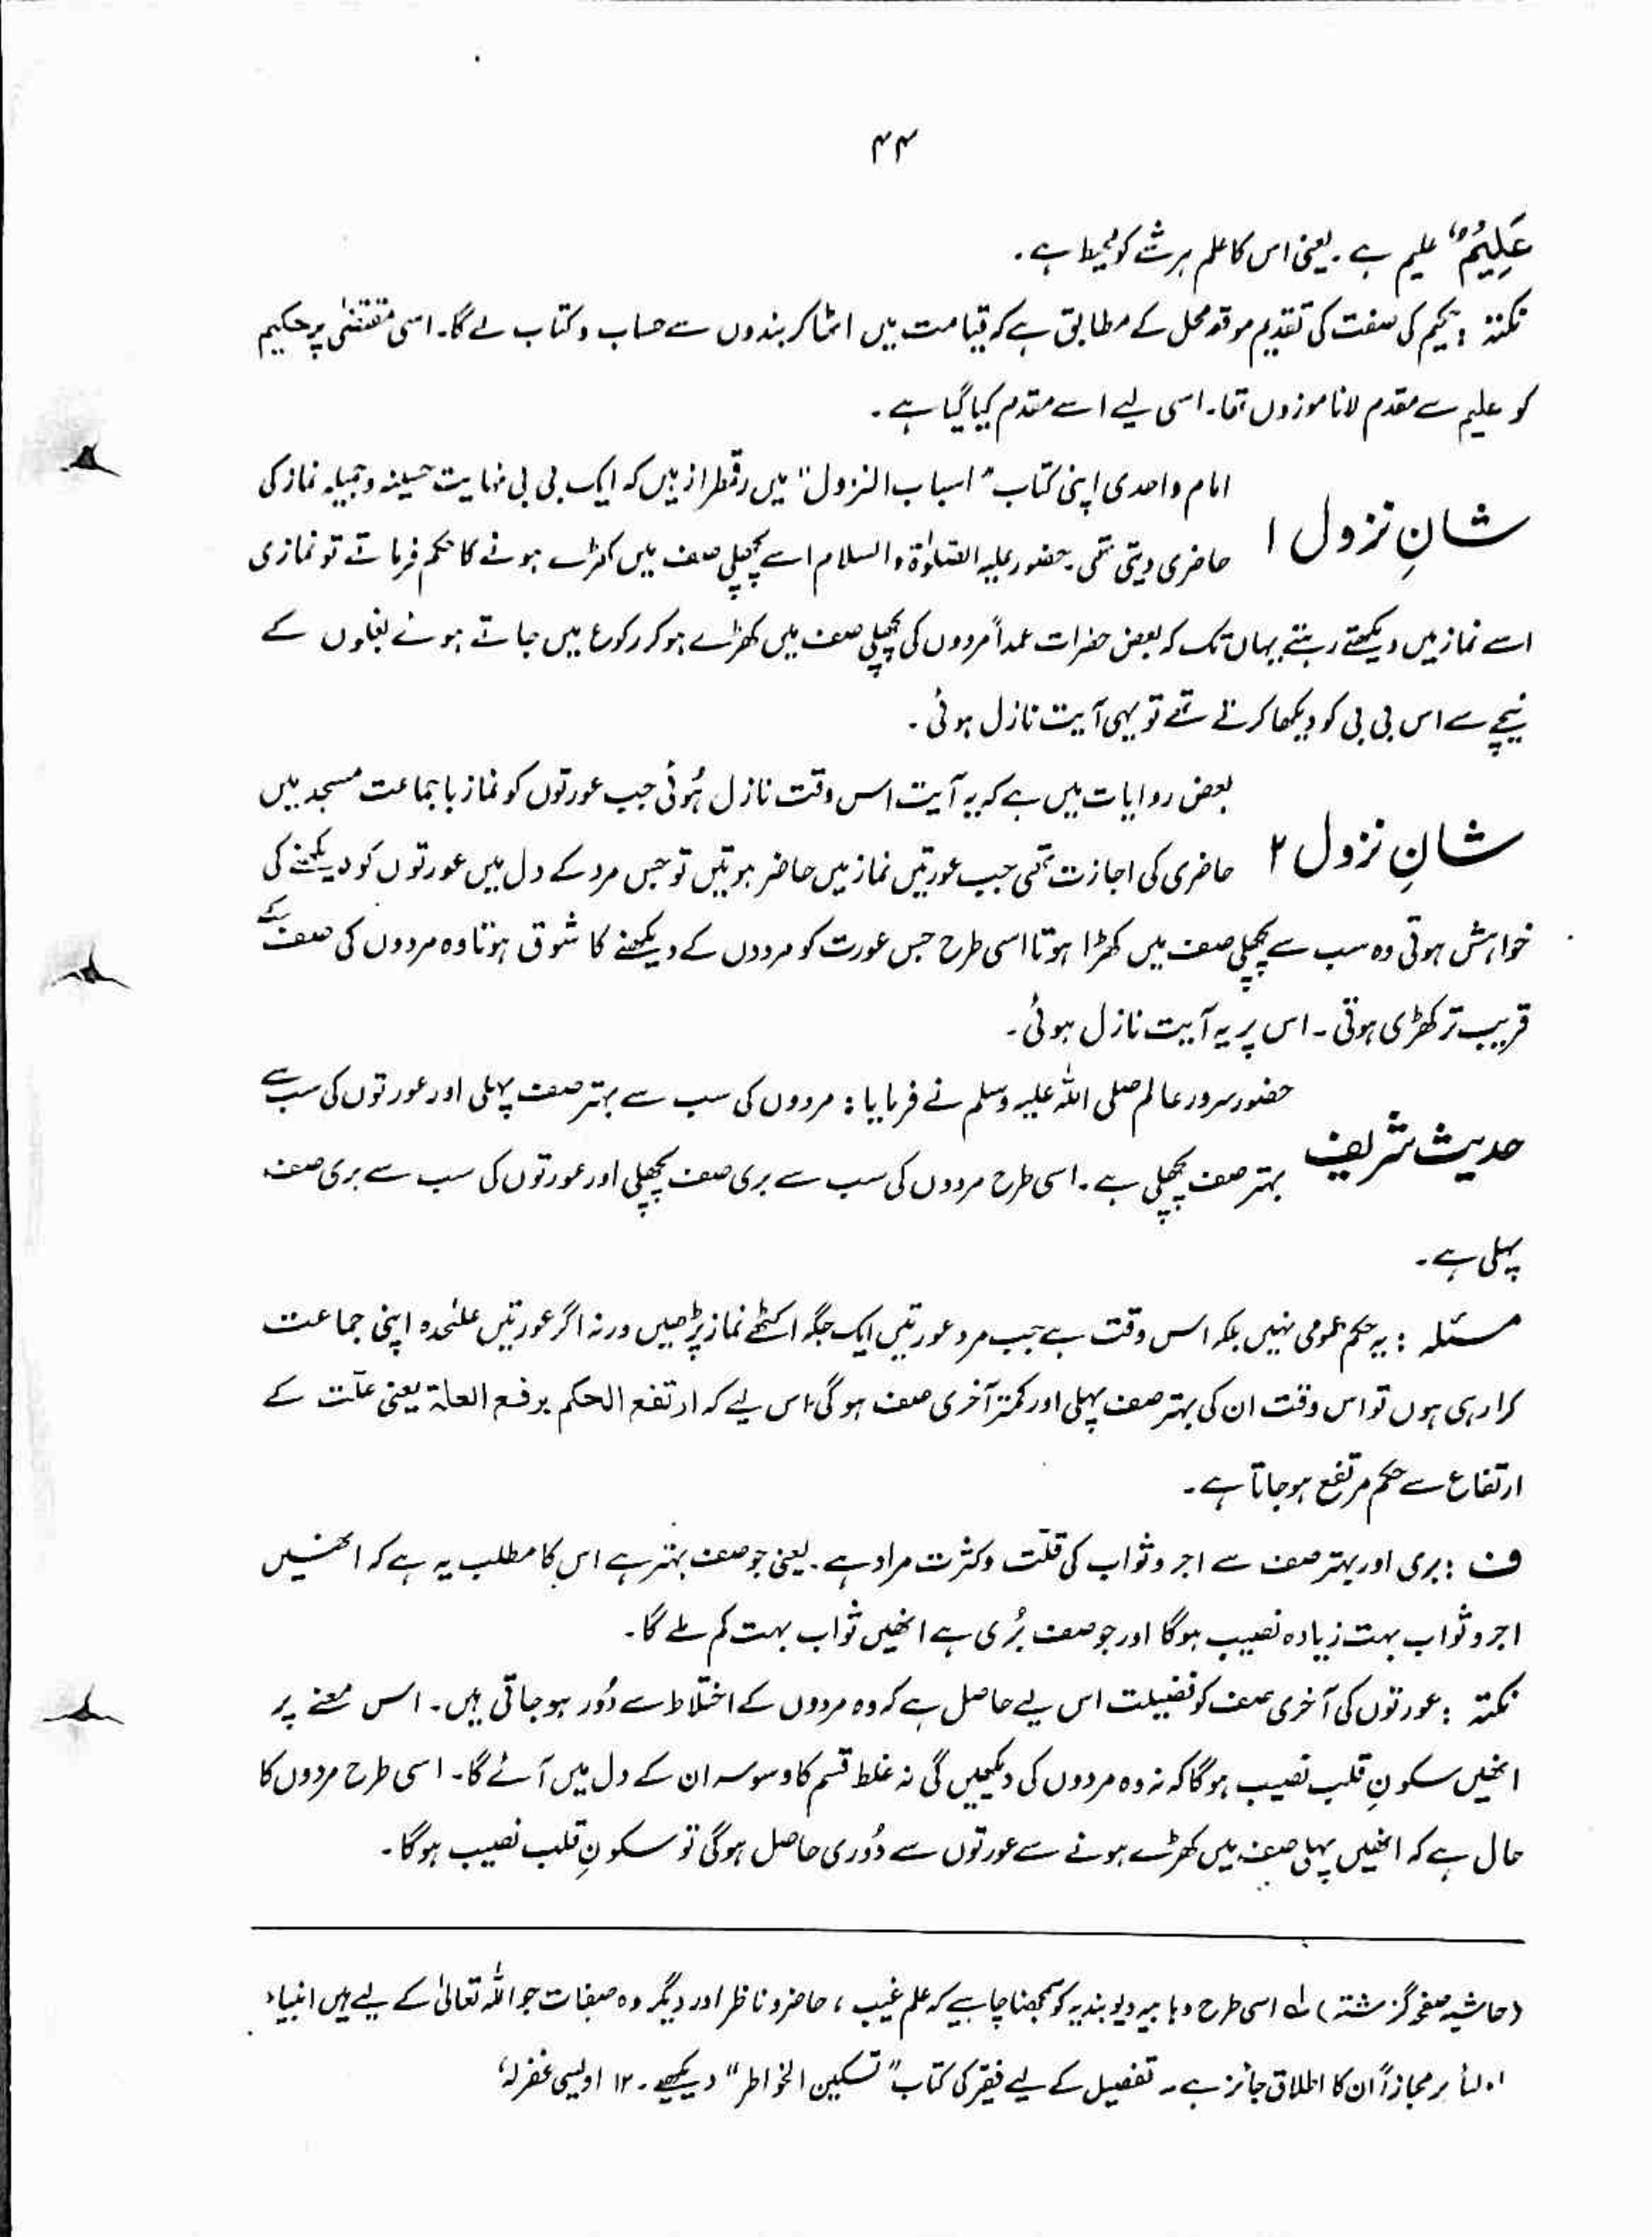 ۴۴
عَلِیْمٌ" علیم ہے۔ یعنی اس کا علم ہر شے کو محیط ہے۔
نکتہ : حکیم کی صفت کی تقدیم موقعہ محل کے مطابق ہے کہ قیامت میں اٹھا کر بندوں سے حساب و کتاب لے گا۔ اسی مقتضیٰ پر حکیم
کو علیم سے مقدم لانا موزوں تھا۔ اسی لیے اسے مقدم کیا گیا ہے۔
شانِ نزول ۱
امام واحدی اپنی کتاب "اسباب النزول" میں رقمطراز ہیں کہ ایک بی بی نہایت حسینہ و جمیلہ نماز کی
حاضری دیتی تھی۔ حضور علیہ الصلوٰۃ والسلام اسے پچھلی صف میں کھڑے ہونے کا حکم فرماتے تو نمازی
اسے نماز میں دیکھتے رہتے یہاں تک کہ بعض حضرات عمداً مردوں کی پچھلی صف میں کھڑے ہو کر رکوع میں جاتے ہوئے بغلوں کے
نیچے سے اس بی بی کو دیکھا کرتے تھے تو یہی آیت نازل ہوئی۔
شانِ نزول ۲
بعض روایات میں ہے کہ یہ آیت اس وقت نازل ہُوئی جب عورتوں کو نماز باجماعت مسجد میں
حاضری کی اجازت تھی جب عورتیں نماز میں حاضر ہوتیں تو جس مرد کے دل میں عورتوں کو دیکھنے کی
خواہش ہوتی وہ سب سے پچھلی صف میں کھڑا ہوتا اسی طرح جس عورت کو مردوں کے دیکھنے کا شوق ہوتا وہ مردوں کی صف کے
قریب تر کھڑی ہوتی۔ اس پر یہ آیت نازل ہوئی۔
حدیث شریف
حضور سرور عالم صلی اللہ علیہ وسلم نے فرمایا : مردوں کی سب سے بہتر صف پہلی اور عورتوں کی سب سے
بہتر صف پچھلی ہے۔ اسی طرح مردوں کی سب سے بری صف پچھلی اور عورتوں کی سب سے بری صف
پہلی ہے۔
مسئلہ : یہ حکم عمومی نہیں بلکہ اس وقت ہے جب مرد عورتیں ایک جگہ اکٹھے نماز پڑھیں ورنہ اگر عورتیں علٰحدہ اپنی جماعت
کرا رہی ہوں تو اس وقت ان کی بہتر صف پہلی اور کمتر آخری صف ہوگی اس لیے کہ ارتفع الحکم برفع العلۃ یعنی علّت کے
ارتفاع سے حکم مرتفع ہو جاتا ہے۔
ف : بری اور بہتر صف سے اجر و ثواب کی قلّت و کثرت مراد ہے۔ یعنی جو صف بہتر ہے اس کا مطلب یہ ہے کہ انھیں
اجر و ثواب بہت زیادہ نصیب ہوگا اور جو صف بُری ہے انھیں ثواب بہت کم ملے گا۔
نکتہ : عورتوں کی آخری صف کو فضیلت اس لیے حاصل ہے کہ وہ مردوں کے اختلاط سے دُور ہو جاتی ہیں۔ اس معنے پر
انھیں سکونِ قلب نصیب ہوگا کہ نہ وہ مردوں کی دیکھیں گی نہ غلط قسم کا وسوسہ ان کے دل میں آئے گا۔ اسی طرح مردوں کا
حال ہے کہ انھیں پہلی صف میں کھڑے ہونے سے عورتوں سے دُوری حاصل ہوگی تو سکونِ قلب نصیب ہوگا۔
(حاشیہ صفحہ گزشتہ) لہ اسی طرح وہابیہ دیوبندیہ کو سمجھنا چاہیے کہ علم غیب ، حاضر و ناظر اور دیگر وہ صفات جو اللہ تعالیٰ کے لیے ہیں انبیاء
اولیأ پر مجازاً ان کا اطلاق جائز ہے۔ تفصیل کے لیے فقیر کی کتاب "تسکین الخواطر" دیکھیے۔ ۱۲ اویسی غفرلہٗ